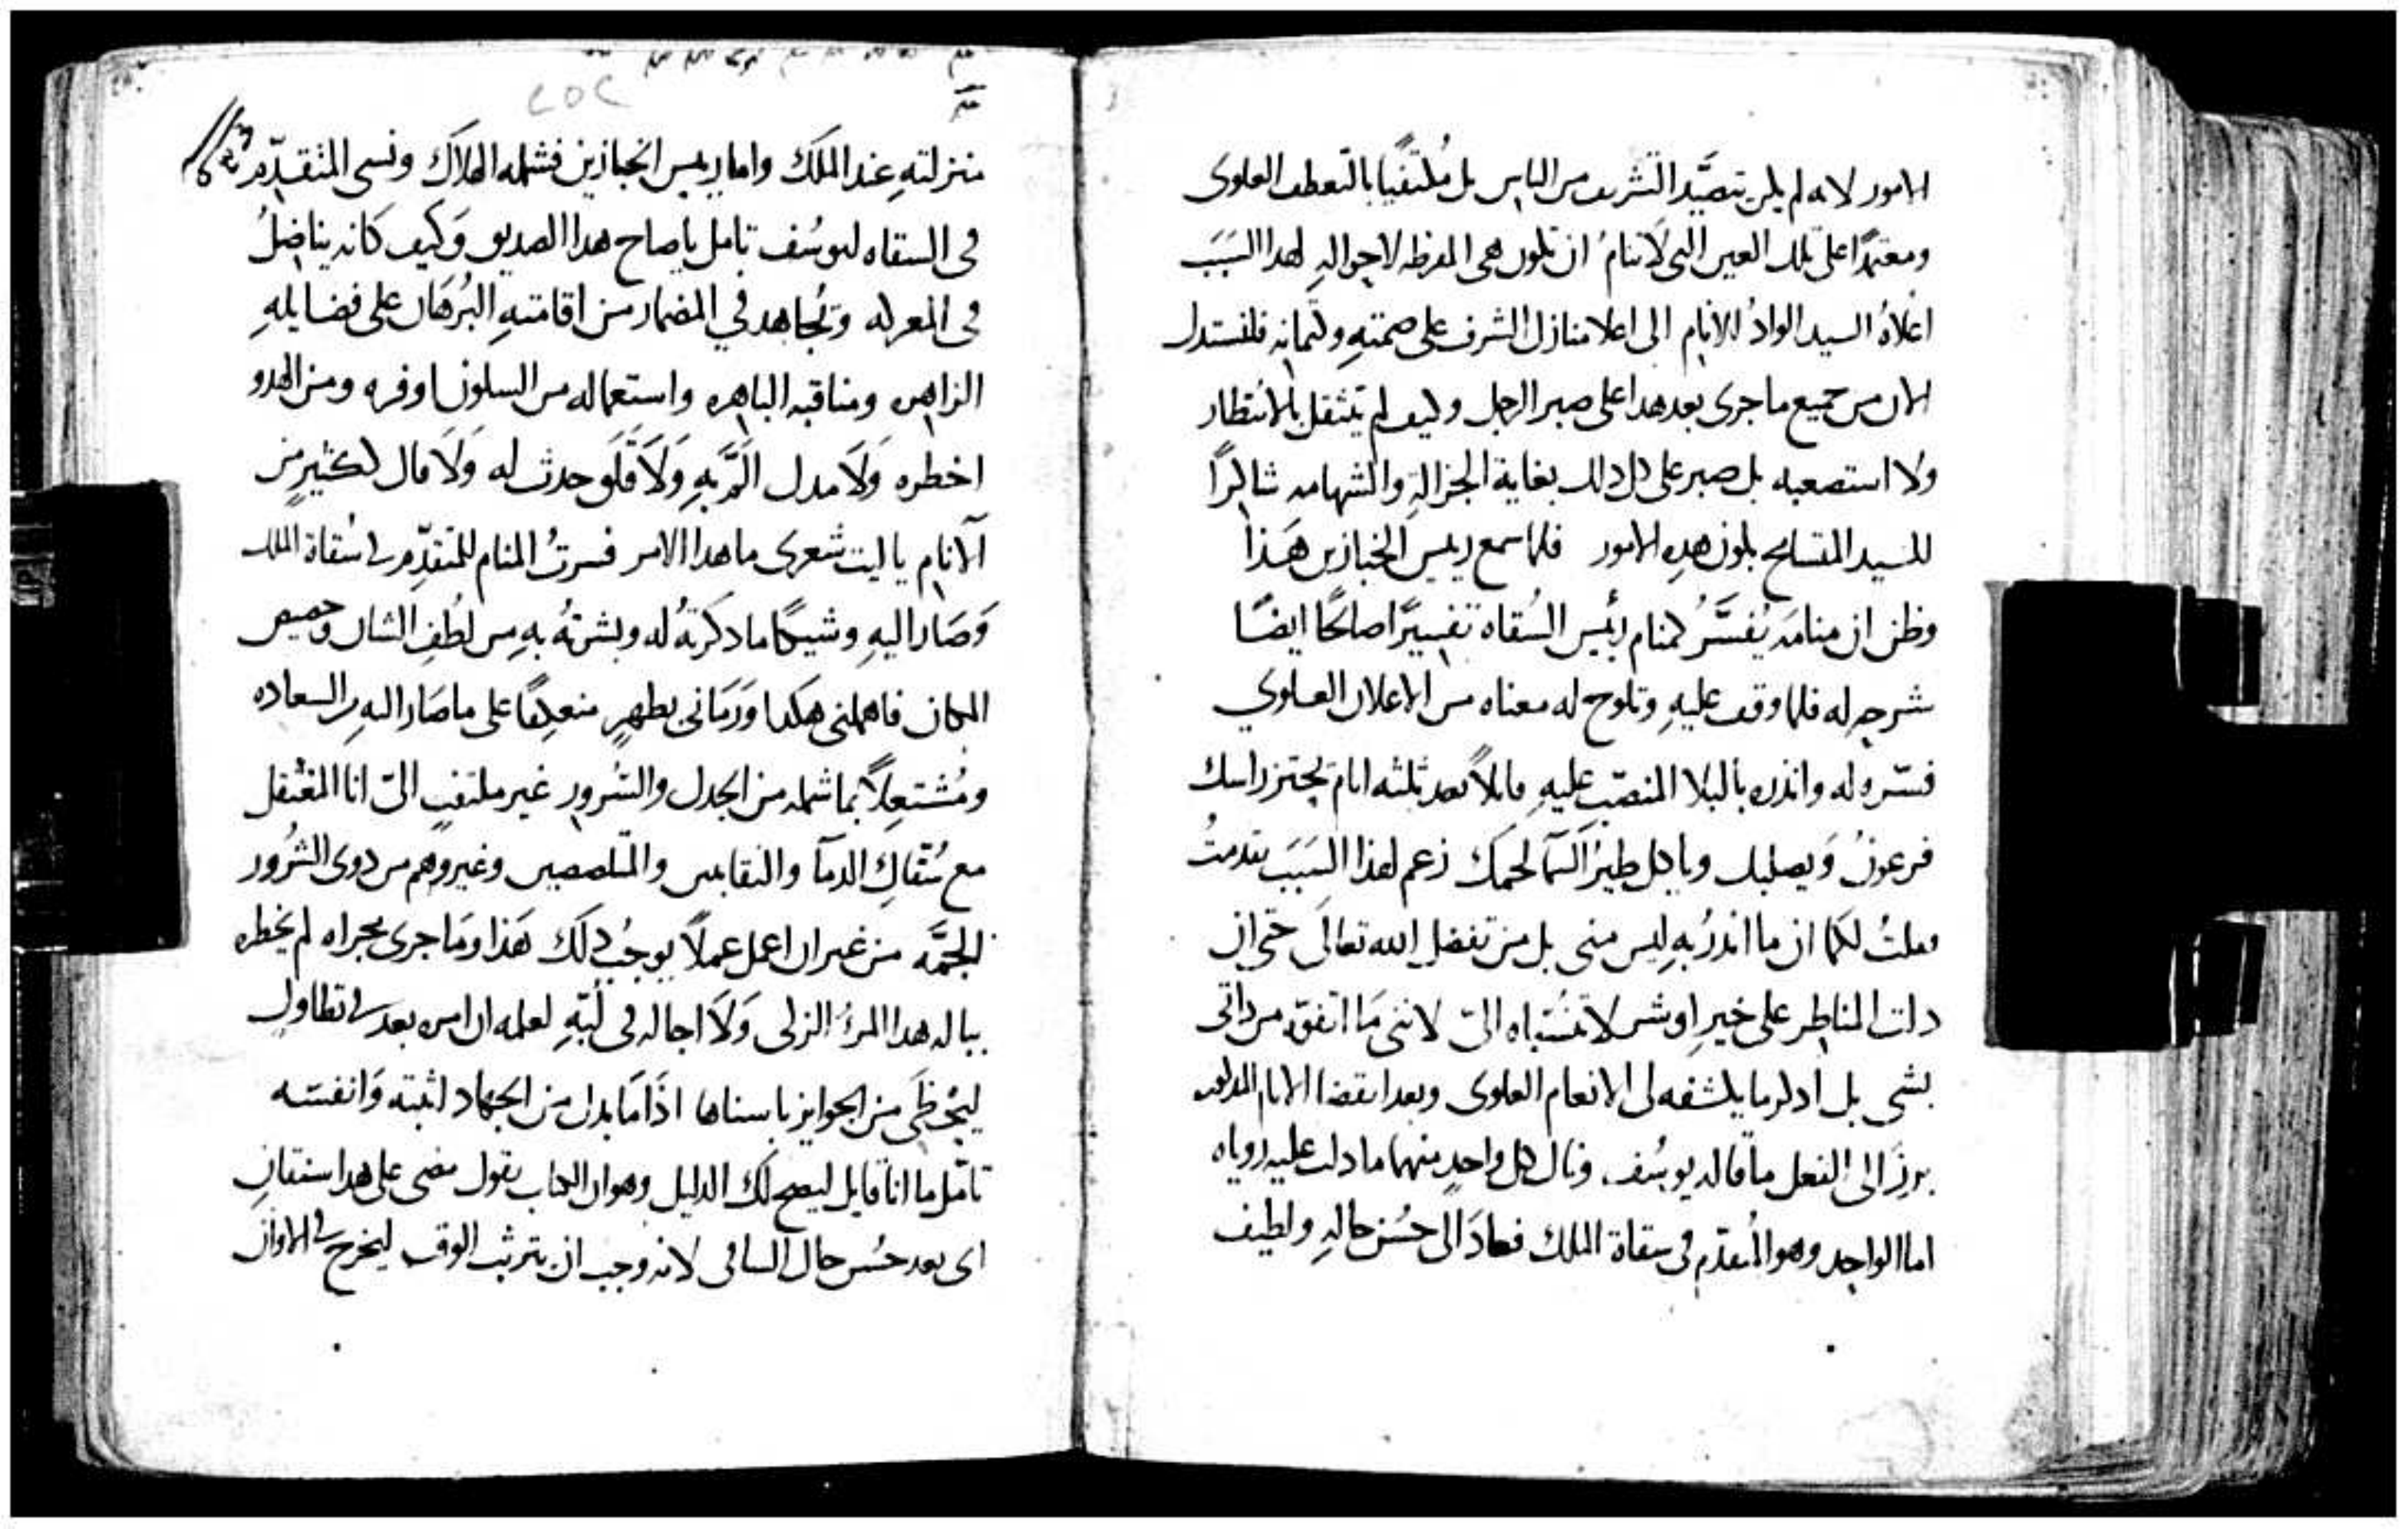 الامور لانه لم يكن يتصيَّد التشريف من الناس بل مُكتفيًا بالتعطف العلوى
ومعتمدًا على تلك العين التى لا تنامُ ان تكون هى المقرظه لاحوالهِ لهدا السَبَبَ
اعلاهُ السيد الوادُ للانام الى اعلا منازل الشرف على صمتهِ وكتمانه فلنستدل
الان من جميع ما جرى بعد هدا على صبر الرجل وكيف لم يتثقل بالانتظار
ولا استصعبه بل صبر على كل دلك بغاية الجزالهِ والشهامه شاكرًا
للسيد المتسامح بكون هدهِ الامور فلما سمع ريس الخبازين هَذا
وظن ان منامَه يُفسَّرُ كمنام رئيس السُقاه تفسيرًا صالحًا ايضًا
شرحهِ له فلما وقف عليهِ وتلوح له معناه من الاعلان العلوي
فسّره له وانذره بالبلا المنصّب عليهِ قايلاً بعد ثلثه ايام يجتز راسك
فرعونُ وَيصلبك وياكل طيرُ السمآ لحمك زعم لهذا السَبَبَ تقدمتُ
فقلتُ لكما ان ما اندرُ بهِ ليس منى بل من تفضل الله تعالى حتى ان
دلت المناظر على خيرٍ او شر لا تنسُباه الىّ لاننى مَا اتفوّه من داتى
بشى بل ادكر ما يكشفه لى الانعام العلوى وبعد انقضا الايام المدكوره
برزَ الى الفعل ما قاله يوسُف ونال كل واحدٍ منهما ما دلت عليه روياه
اما الواحد وهو المُتقدّم فى سقاة الملك فعادَ الى حسُن حالهِ ولطيف
منزلتهِ عند الملَك واما ريس الخبازين فشمله الهلاَك ونسى المتقدّم
فى السقاه ليوسُف تامل يا صاح هدا الصديق وَكيف كانَ يناضلُ
فى المعركه وَيُجاهد في المضمار من اقامتهِ البُرهَان على فضايلهِ
الزاهره ومناقبه الباهره واستعماله من السكون اوفره ومن الهدو
اخطره وَلاَ مدل المَرتبهِ وَلاَ قلَق حدث له وَلاَ قال لكثيرٍ من
الانام يا ليت شعرى ما هدا الامر فسرتُ المنام للمتقدّم فى سُقاة الملك
وَصَار اليهِ وشيكًا ما دكرتهُ له وبشرتهُ بهِ من لُطفِ الشان وخصيص
المكان فاهملنى هكدا وَرَمَانى بظهرٍ منعكِفًا على ما صَار اليهِ من السعاده
ومُشتعِلاً بما شمله من الجدل والسُرور غير ملتفتٍ الىّ انا المعُتقل
مع سُفّاكِ الدمآ والنقابين والمتلصصين وغيرهم من دوى الشرُور
الجمَّه من غير ان اعمل عملاً يوجُب دلَك هَذا ومَا جرى مجراه لم يخطره
بباله هدا المرءُ الزلى وَلاَ اجاله فى لُبّهِ لعلمه ان امره بعد فى تطاول
ليُحظَى من الجوايز باسناها اذَا مَا بدل من الجهاد اثبته وَانفسَه
تامّل ما انا قايل ليصح لك الدليل وهو ان الكتاب يقول مضى على هدا سنتان
اى بعد حسُن حال الساقى لانه وجب ان يتربث الوقت ليخرج فى الاوان